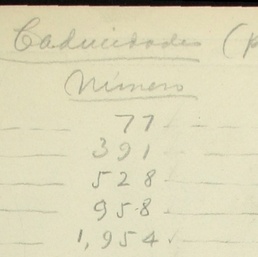 Caducidades (p
Número
77
391
528
958
1,954